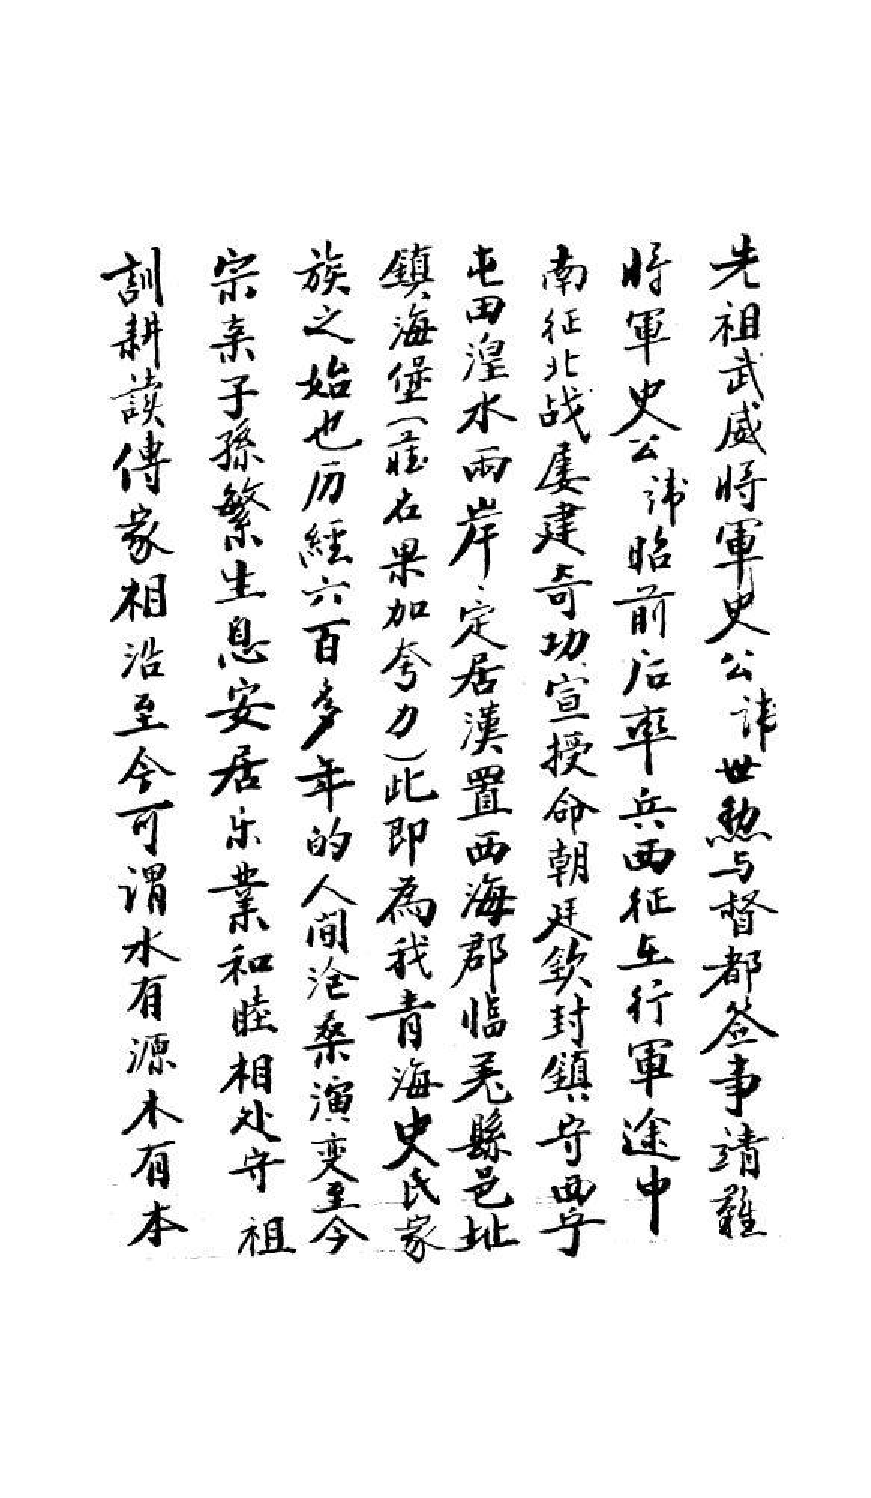 先祖武威將軍史公諱世勲与督都簽事靖難
將軍史公諱昭前后率兵西征在行軍途中
南征北战屡建奇功宣授命朝廷欽封鎮守西宁
屯田湟水兩岸定居漢置西海郡臨羌縣邑址
鎮海堡(藏名果加夸力)此即為我青海史氏家
族之始也历經六百多年的人间沧桑演变至今
宗亲子孫繁生息安居乐業和睦相处守祖
訓耕讀傳家相沿至今可谓水有源木有本